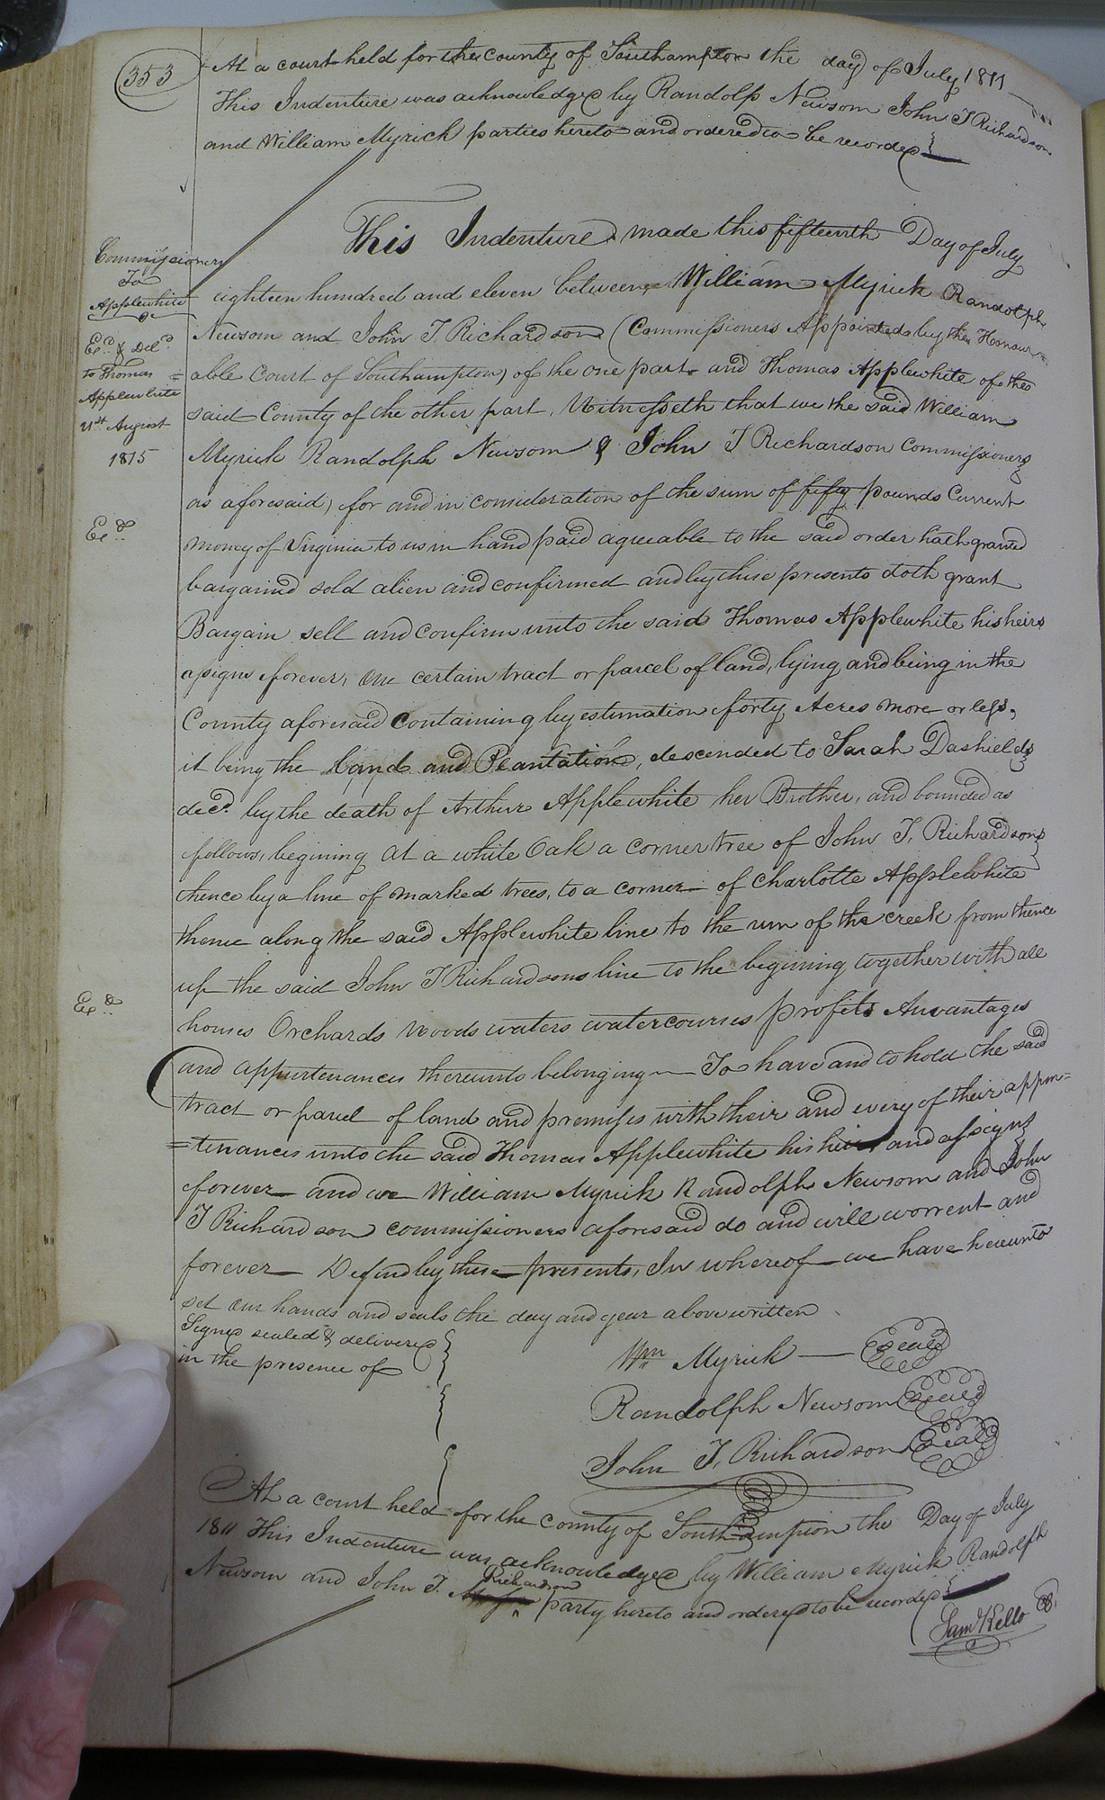 353
At a court held for the county of Southampton the day of July 1811
This Indenture was acknowledged by Randolp Newsom John T Richardson
and William Myrick parties hereto and ordered to be recorded
Commissioners
To
Applewhite
Exd & Deld
to Thomas
Applewhite
21st August
1815
Exd
Exd
This Indenture made this fifteenth Day of July
eighteen hundred and eleven between William Myrick Randolph
Newsom and John T. Richardson (Commissioners Appointed by the Honour
able Court of Southampton) of the one part and Thomas Applewhite of the
said County of the other part, Witnesseth that we the said William
Myrick Randolph Newsom & John T Richardson Commissioners
as aforesaid, for and in consideration of the sum of fifty pounds Current
money of Virginia to us in hand paid agreeable to the said order hath granted
bargained sold alien and confirmed and by these presents doth grant
Bargain sell and confirm unto the said Thomas Applewhite his heirs
assigns forever, one certain tract or parcel of land, lying and being in the
County aforesaid Containing by estimation forty Acres more or less,
it being the land and Plantation, descended to Sarah Dashields
decd. by the death of Arthur Applewhite her Brother, and bounded as
follows, begining at a white Oak a corner tree of John T. Richardsons
thence by a line of marked trees, to a corner of Charlotte Applewhite
thence along the said Applewhite line to the run of the creek from thence
up the said John T Richardsons line to the begining together with all
houses Orchards woods waters watercourses profits Advantages
and appurtenances thereunto belonging To have and to hold the said
tract or parcel of land and premises with their and every of their appur=
=tenances unto the said Thomas Applewhite his heirs and assigns
forever and we William Myrick Randolph Newsom and John
T Richardson commissioners aforesaid do and will worrent and
forever Defend by these presents, In whereof we have hereunto
set our hands and seals the day and year above written
Signed sealed & delivered
in the presence of
Wm Myrick Seal
Randolph Newsom Seal
John T. Richardson Seal
At a court held for the County of Southampton the Day of July
1811 This Indenture was acknowledged by William Myrick Randolph
Newsom and John T. Richardson party hereto and ordered to be recorded
Saml Kello